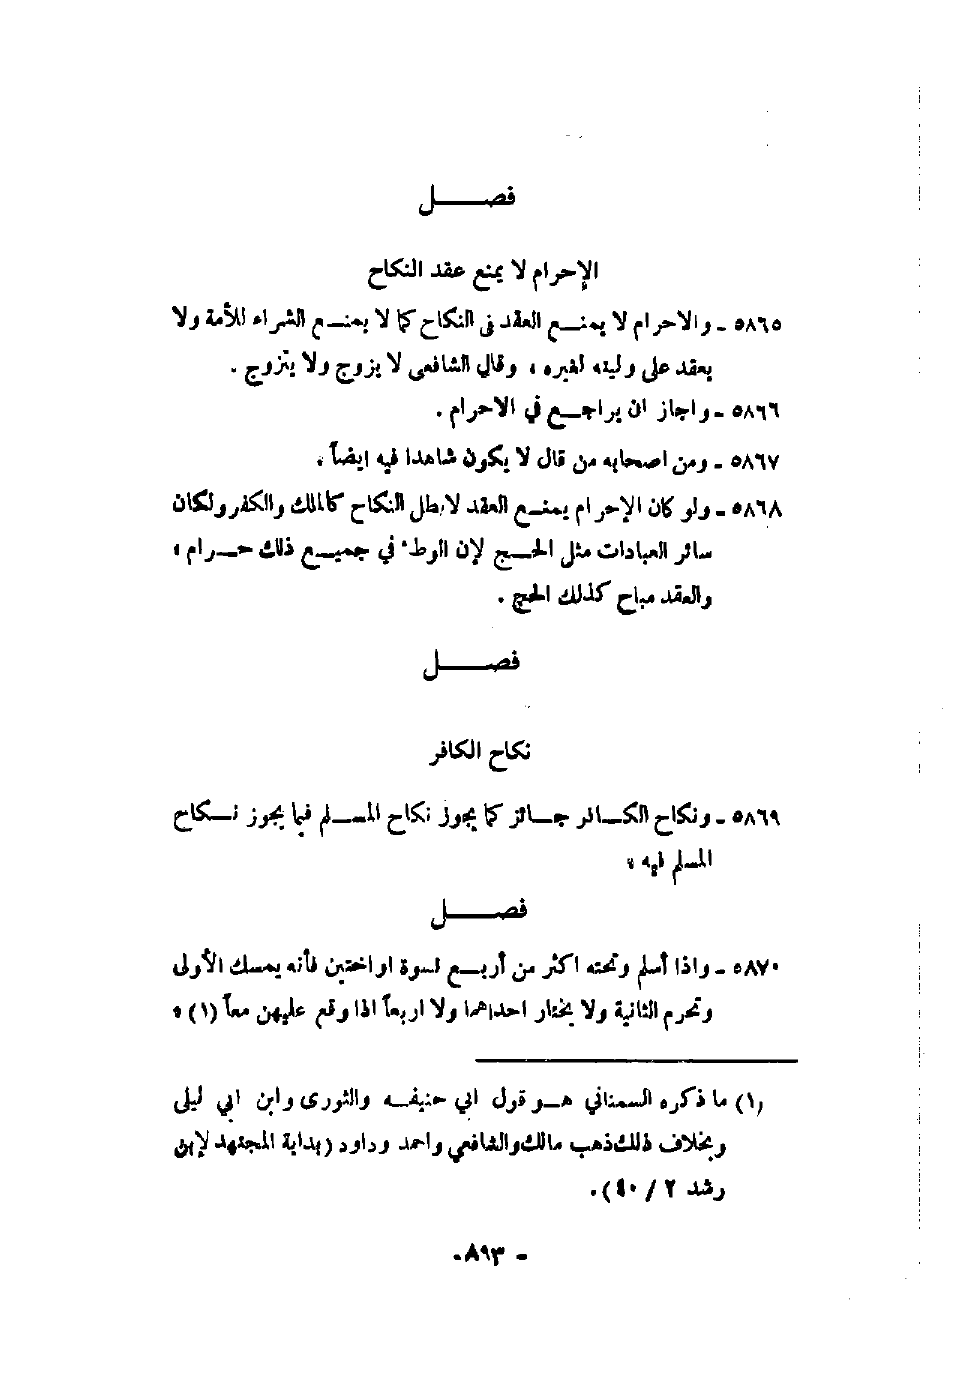 فصـــــل
الإحرام لا يمنع عقد النكاح
٥٨٦٥ ـ والاحرام لا يمنـــع العقد في النكاح كما لا يمنـــع الشراء للأمة ولا
يعقد على وليته لغيره ، وقال الشافعى لا يزوج ولا يتزوج .
٥٨٦٦ ـ واجاز ان يراجـــع في الاحرام .
٥٨٦٧ ـ ومن اصحابه من قال لا يكون شاهدا فيه ايضاً .
٥٨٦٨ ـ ولو كان الإحرام يمنـــع العقد لابطل النكاح كالملك والكفر ولكان
سائر العبادات مثل الحـــج لإن الوطء في جميـــع ذلك حـــرام ،
والعقد مباح كذلك الحج .
فصـــــل
نكاح الكافر
٥٨٦٩ ـ ونكاح الكـــافر جـــائز كما يجوز نكاح المســـلم فيما يجوز نـــكاح
المسلم فيه .
فصـــــل
٥٨٧٠ ـ واذا أسلم وتحته اكثر من أربـــع نسوة او اختين فأنه يمسك الأولى
وتحرم الثانية ولا يختار احداهما ولا اربعاً اذا وقع عليهن معاً (١) .
(١) ما ذكره السمناني هـــو قول ابي حنيفـــه والثورى وابن ابي ليلى
وبخلاف ذلك ذهب مالك والشافعي واحمد وداود (بداية المجتهد لإبن
رشد ٢ / ٤٠).
- ٨٩٣-